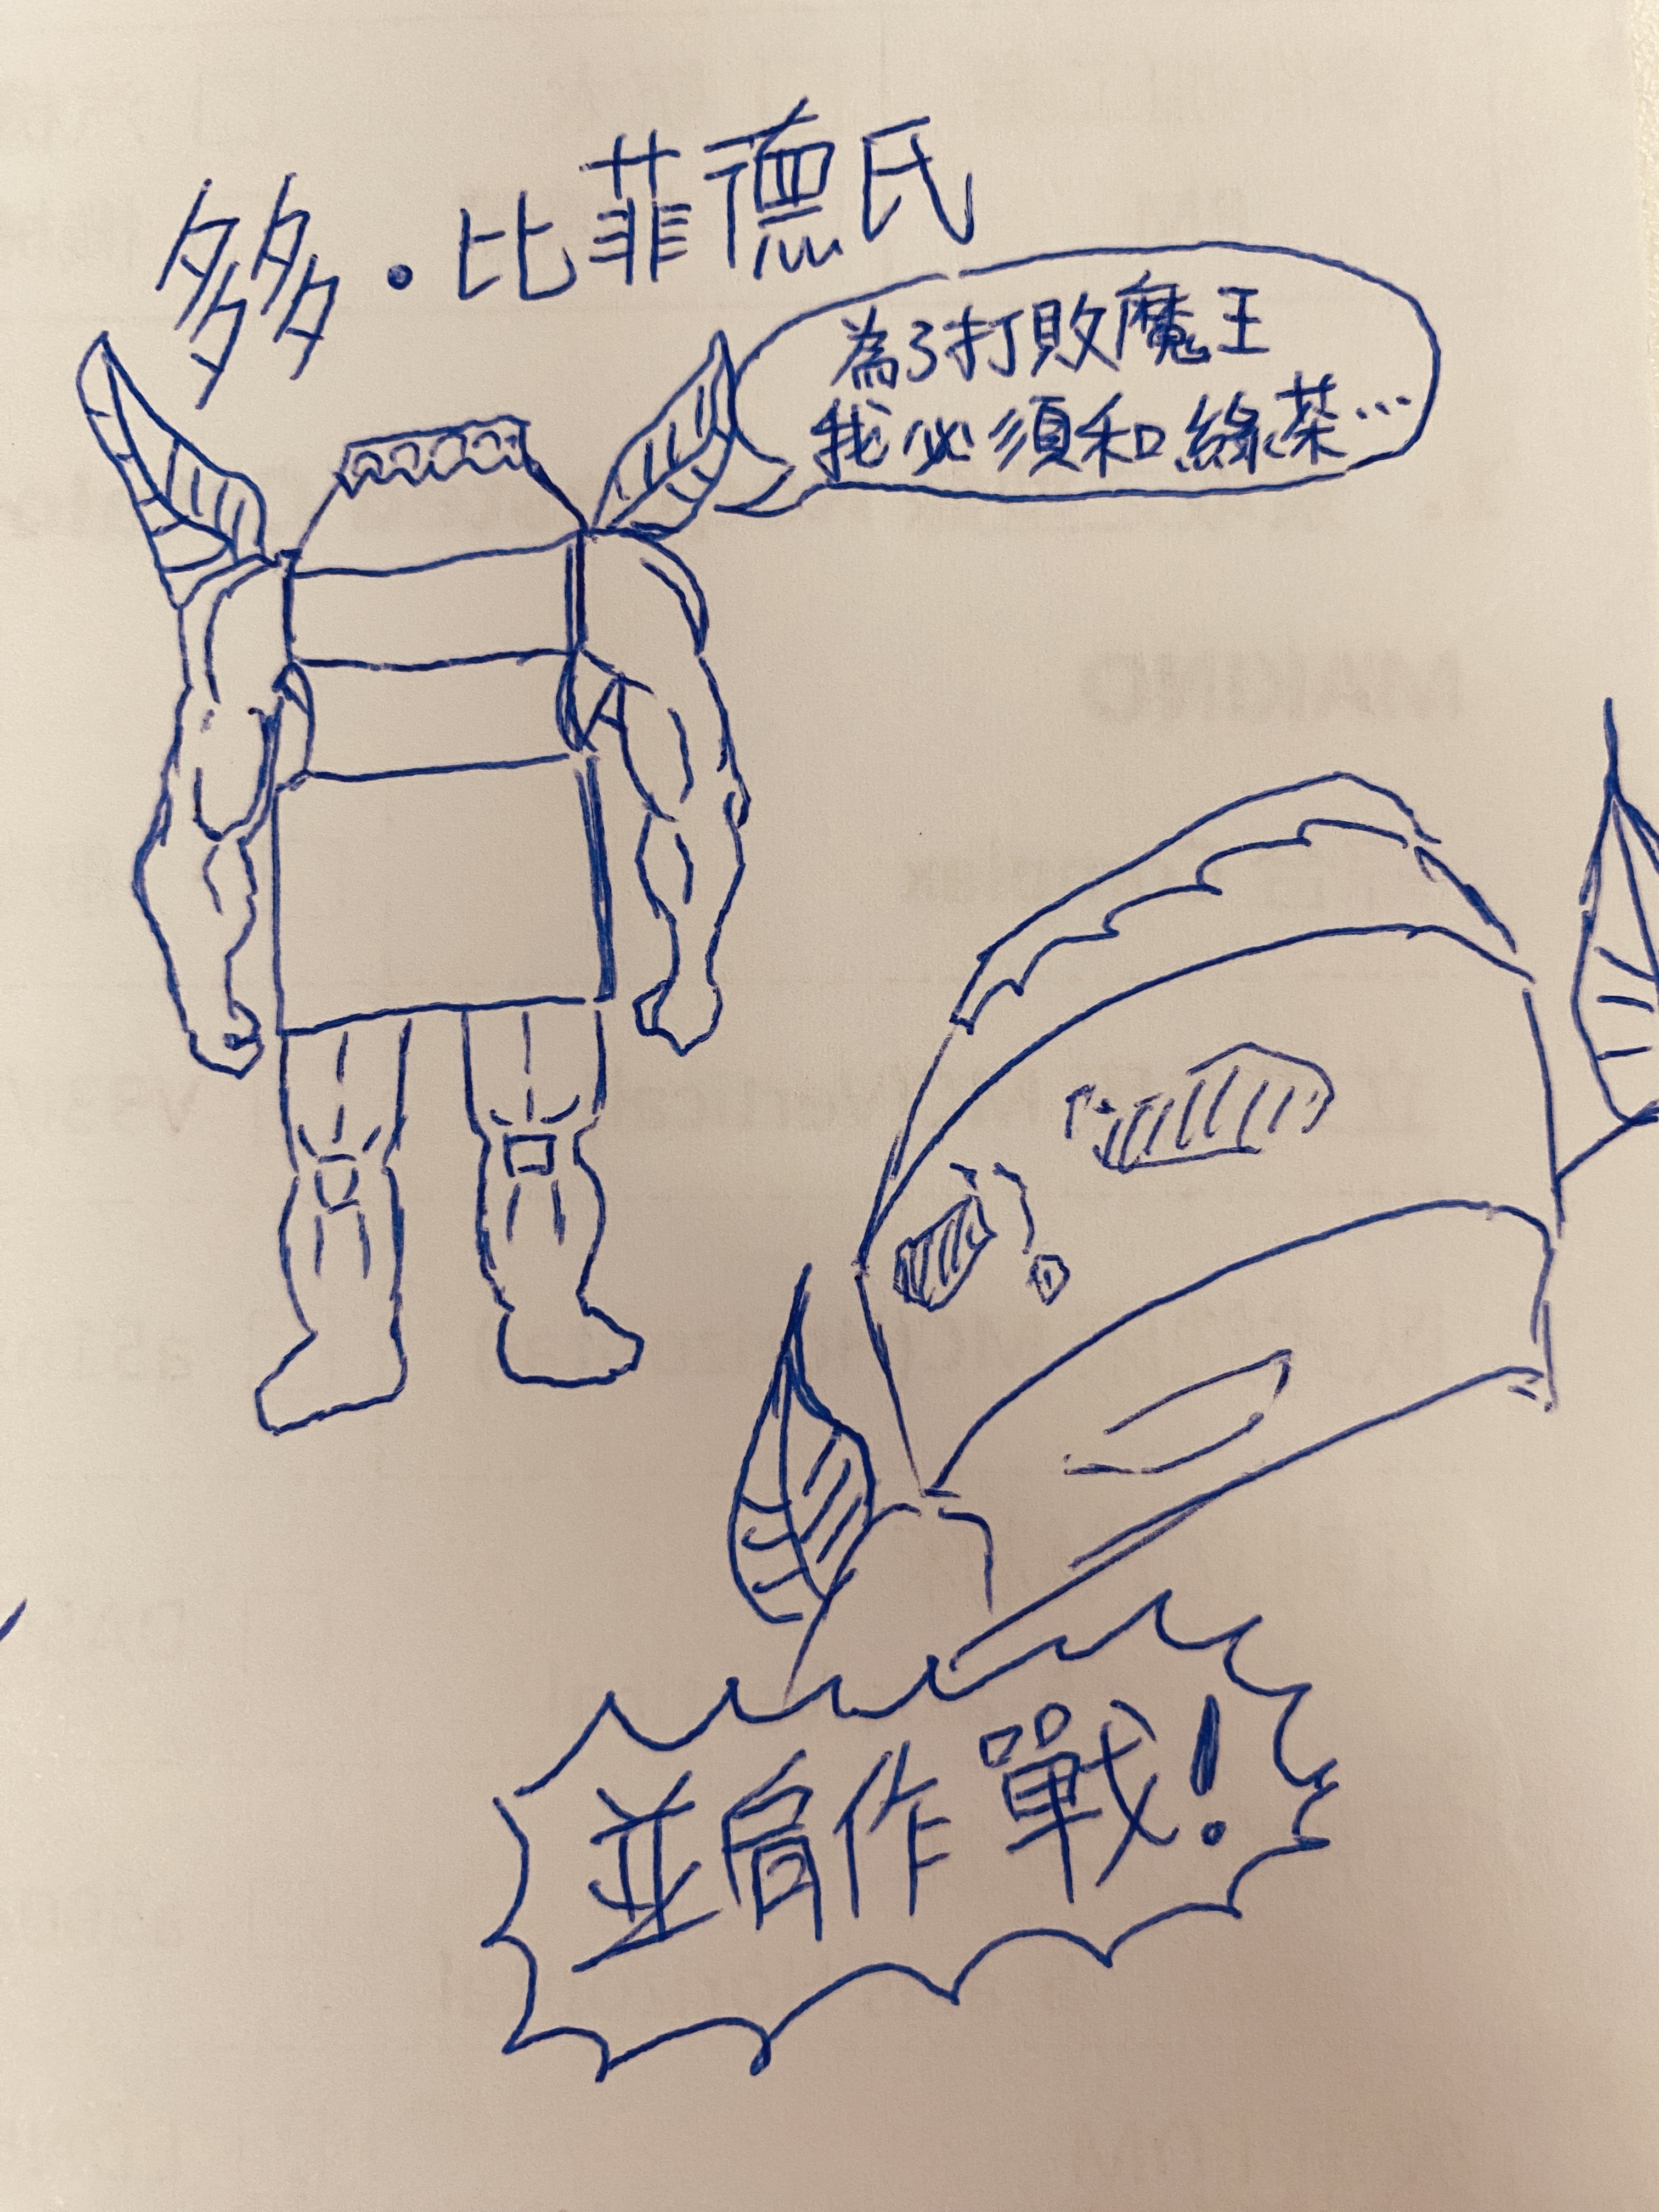 多多·比菲德氏
為了打敗魔王
我必須和綠茶…
並肩作戰！